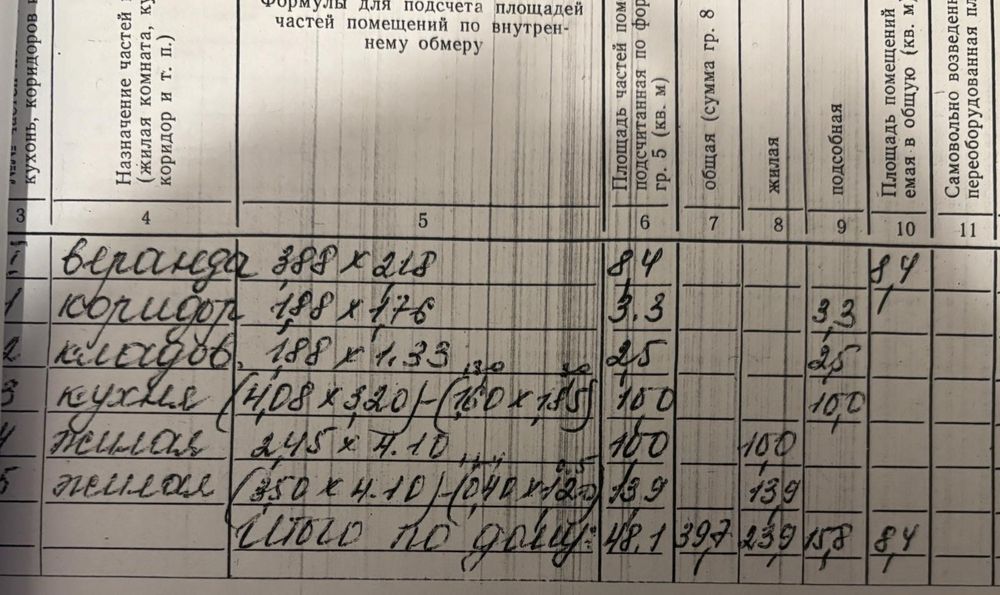 кухонь, коридоров
Назначение частей
(жилая комната, ку
коридор и т. п.)
Формулы для подсчета площадей
частей помещений по внутрен-
нему обмеру
Площадь частей пом
подсчитанная по фор
гр. 5 (кв. м)
общая (сумма гр. 8
жилая
подсобная
Площадь помещений
емая в общую (кв. м)
Самовольно возведен
переоборудованная пл
3 4 5 6 7 8 9 10 11
веранда 3,88 х 2,18 8,4 8,4
1 коридор 1,88 х 1,76 3.3 3,3
2 кладов. 1,88 х 1.33 2,5 2,5
3 кухня (4,08 х 3,20) - (1,60 х 1,85) 10,0 10,0
4 жилая 2,45 х 4.10 10,0 10,0
5 жилая (3,50 х 4.10) - (0,40 х 1,20) 13,9 13,9
Итого по дому: 48,1 39,7 23,9 15,8 8,4